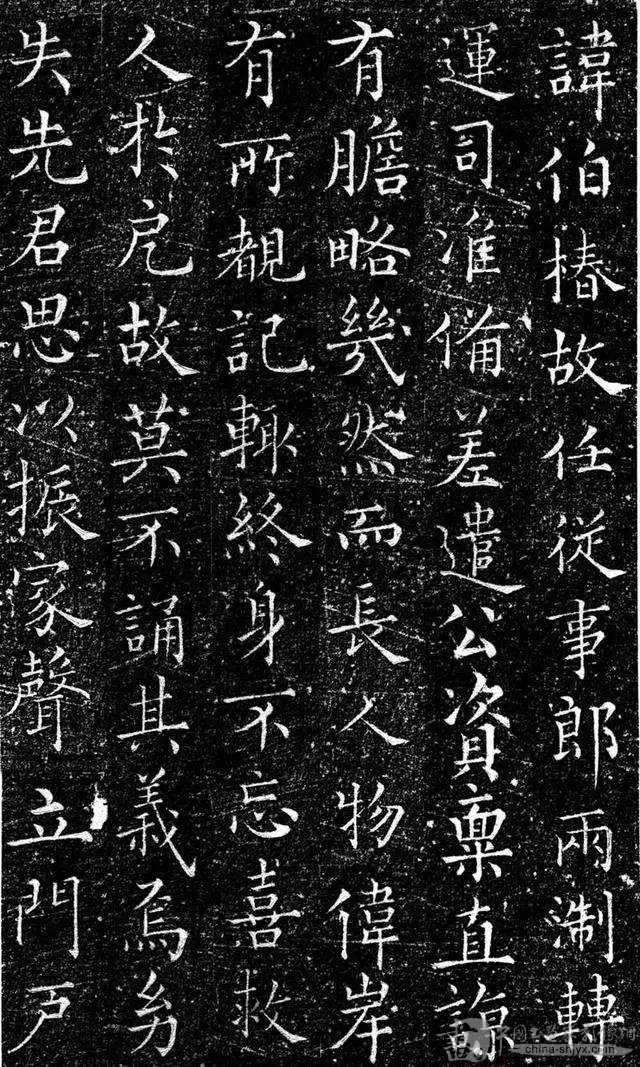 諱伯椿故任従事郎兩淛轉
運司准備差遣公資稟直諒
有膽略幾然而長人物偉岸
有所覩記輒終身不忘喜救
人於戹故莫不誦其義焉㓜
失先君思以振家聲立門戶
china-shjyx.com